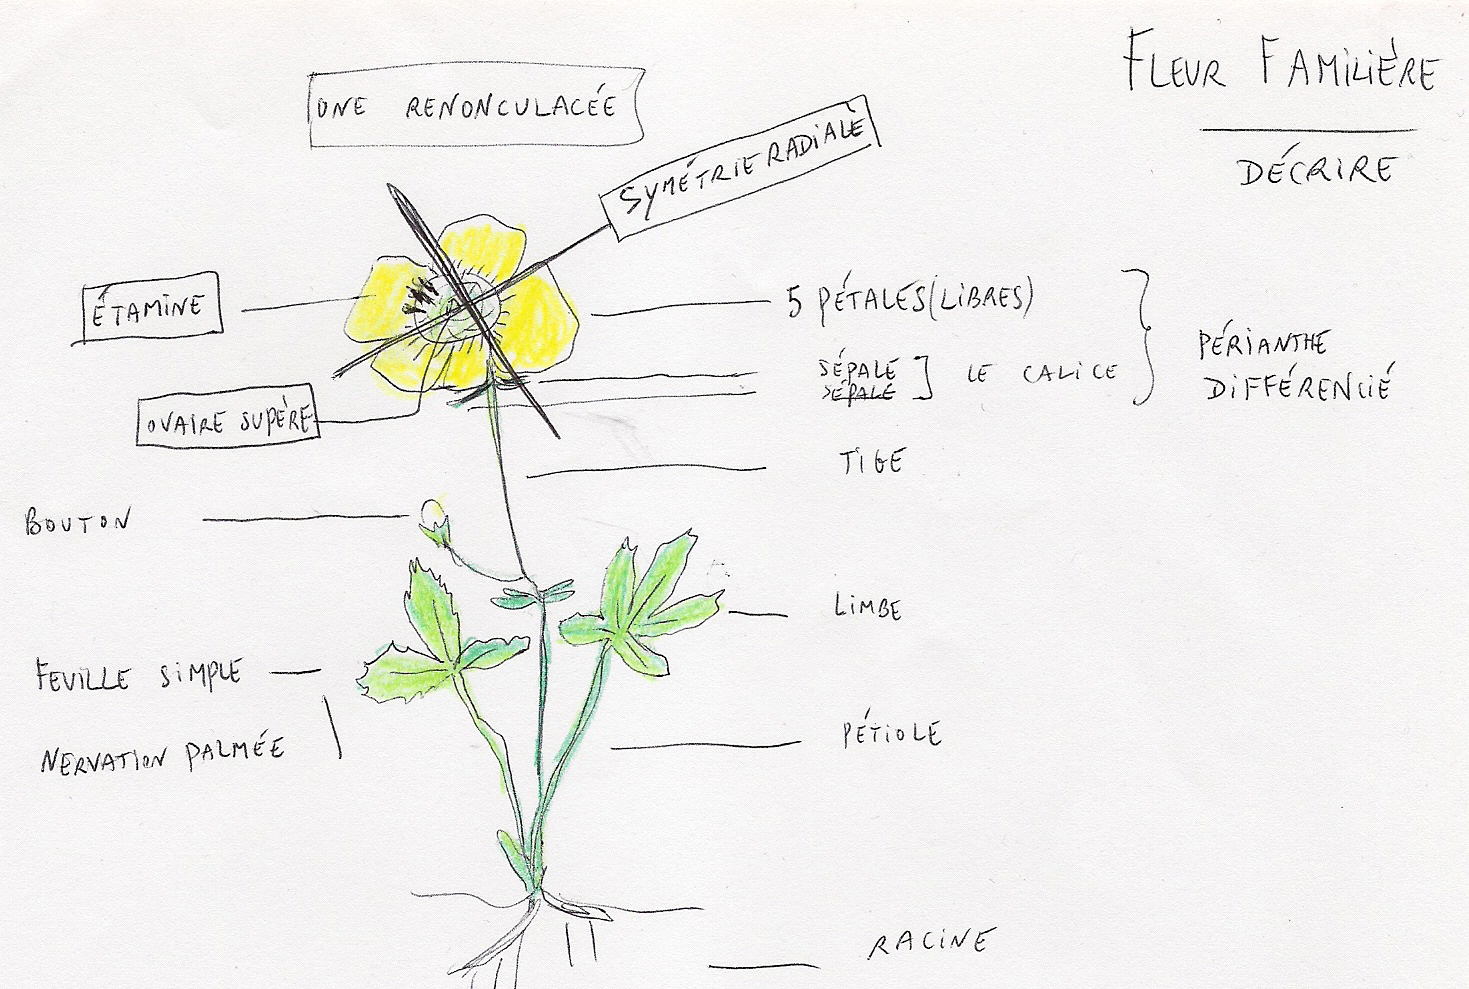 FLEUR FAMILIÈRE
DÉCRIRE
UNE RENONCULACÉE
SYMÉTRIE RADIALE
ÉTAMINE
5 PÉTALES (LIBRES)
PÉRIANTHE
DIFFÉRENCIÉ
SÉPALE
SÉPALE
LE CALICE
OVAIRE SUPÈRE
TIGE
BOUTON
LIMBE
FEUILLE SIMPLE
NERVATION PALMÉE
PÉTIOLE
RACINE